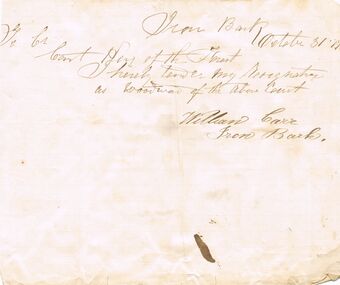 Iron Bark
October 31
To Cr
Court Hey of the Forest
I hereby tender my Resignation
as Woodward of the above Court
William Carr
Iron Bark.